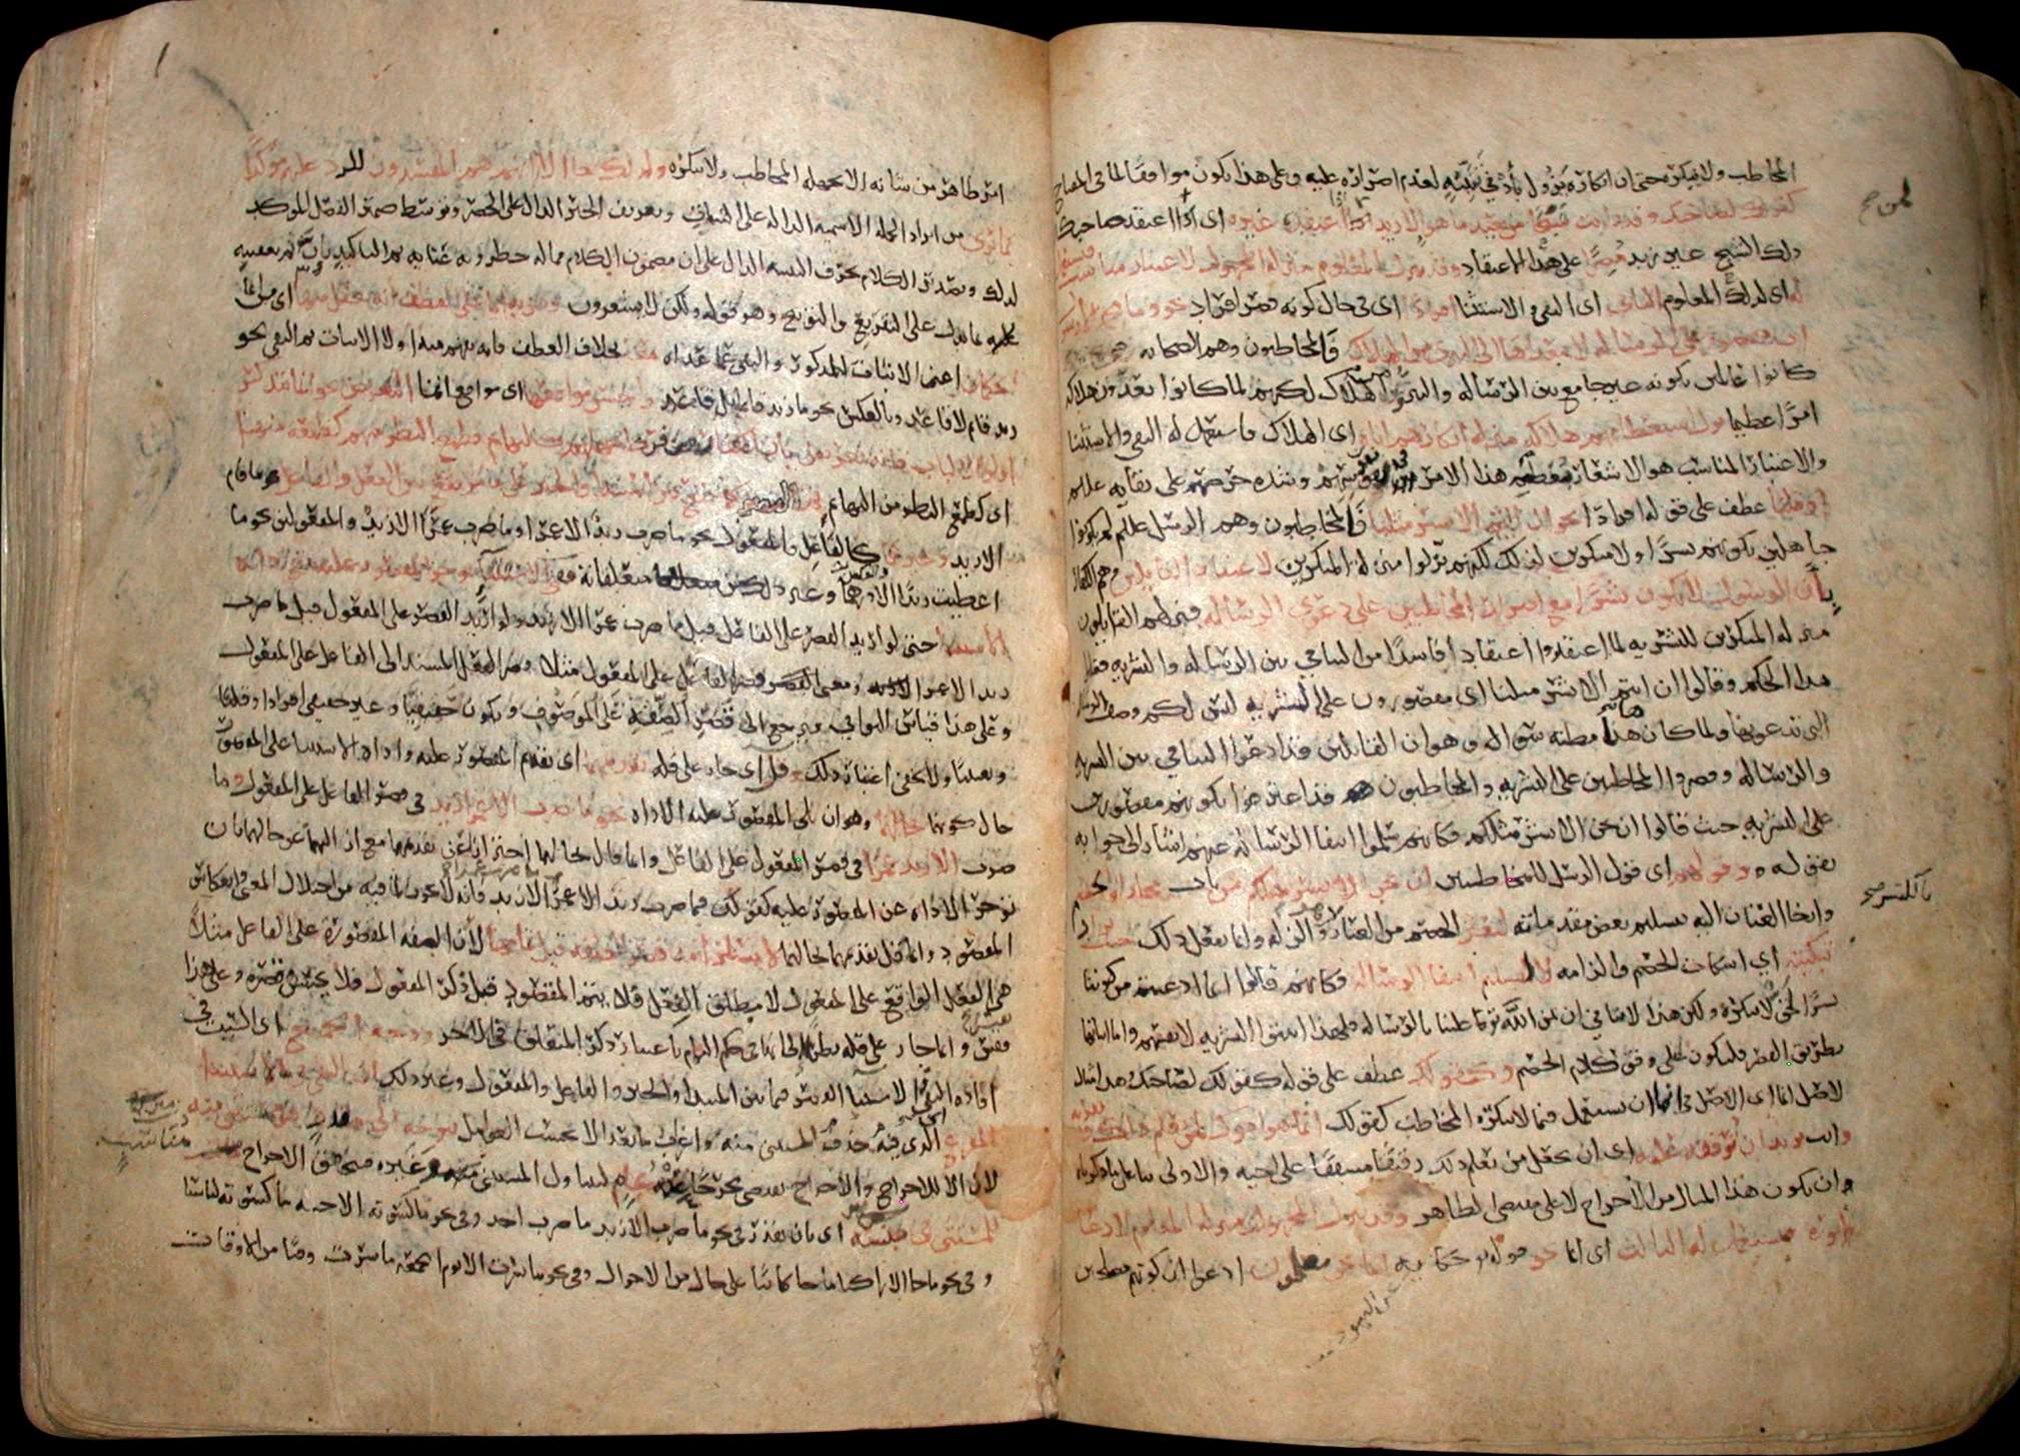 المخاطب ولا ينكره حتى ان انكاره يزول بأدنى تنبيه لعدم اصراره عليه وعلى هذا يكون موافقا لما في المفتاح
كقولك لصاحبك وقد رايت شبحا من بعيد ما هو الا زيد اذا اعتقده غيره اى اذا اعتقد صاحبك
ذلك الشبح غير زيد مصرا على هذا الاعتقاد وقد ينزل المعلوم منزلة المجهول لاعتبار مناسب
له اى لذلك المعلوم الثاني اى النفي والاستثنا افرادا اى في حال كونه قصر افراد نحو وما محمد الا رسول
اى مقصور على الرسالة لا يتعداها الى التبري من الهلاك فالمخاطبون وهم الصحابه
كانوا عالمين بكونه غير جامع بين الرسالة والتبري من الهلاك لكنهم لما كانوا يعدون هلاكه
امرا عظيما نزل استعظامهم هلاكه منزلة انكارهم اياه اى الهلاك فاستعمل له النفي والاستثنا
والاعتبار المناسب هو الاشعار بعظم هذا الامر في نفوسهم وشدة حرصهم على بقائه عليه
او قلبا عطف على قوله افرادا نحو ان انتم الا بشر مثلنا فالمخاطبون وهم الرسل عليهم لم يكونوا
جاهلين بكونهم بشرا ولا منكرين لذلك لكنهم نزلوا منزلة المنكرين لاعتقاد القايلين وهم الكفار
بأن الرسول لا يكون بشرا مع اصرار المخاطبين على دعوى الرسالة فنزلهم القايلون
منزلة المنكرين للبشرية لما اعتقدوا اعتقادا فاسدا من التنافي بين الرسالة والبشرية فقلبوا
هذا الحكم وقالوا ان انتم الا بشر مثلنا اى مقصورون على البشرية ليس لكم وصف الرسالة
التي تدعونها ولما كان هنا مظنة سؤال وهو ان القائلين قد ادعوا التنافي بين البشرية
والرسالة وقصروا المخاطبين على البشرية والمخاطبون قد اعترفوا بكونهم مقصورين
على البشرية حيث قالوا ان نحن الا بشر مثلكم فكانهم سلموا انتفا الرسالة عنهم اشار الى جوابه
بقوله وقولهم اى قول الرسل للمخاطبين ان نحن الا بشر مثلكم من باب مجاراة الخصم
وارخا العنان اليه بتسليم بعض مقدماته ليعثر الخصم من العثار وهو الزلة وانما يفعل ذلك حيث يراد
تبكيته اى اسكات الخصم والزامه لا لتسليم انتفا الرسالة فكانهم قالوا انما ادعيتم من كوننا
بشرا لحق لا ننكره ولكن هذا لا ينافي ان يمن الله تع علينا بالرسالة فلهذا اثبتوا البشرية لانفسهم واما اثباتها
بطريق القصر فليكون على وفق كلام الخصم وكقولك عطف على قوله كقولك لصاحبك هذا مثال
لاصل انما اى الاصل في انما ان يستعمل فيما لا ينكره المخاطب كقولك انما هو اخوك لمن يعلم ذلك ويقر به
وانت تريد ان ترققه عليه اى ان تجعل من يعلم ذلك رقيقا مشفقا على اخيه والاولى بنا على ما ذكرنا
ان يكون هذا المثال من الاخراج لا على مقتضى الظاهر وقد ينزل المجهول منزلة المعلوم لادعا
ظهوره فيستعمل له الثالث اى انما نحو قوله تع حكاية انما نحن مصلحون ادعوا ان كونهم مصلحين
عن اليهود
بالكسر صح
امر ظاهر من شانه الا يجهله المخاطب ولا ينكره ولذلك جا الا انهم هم المفسدون للرد عليهم مؤكدا
بما ترى من ايراد الجملة الاسمية الدالة على الثبات وتعريف الخبر الدال على الحصر وتوسط ضمير الفصل الموكد
لذلك وتصدير الكلام بحرف التنبيه الدال على ان مضمون الكلام مما له خطر وبه عناية ثم التاكيد بان ثم تعقيبه
بما يدل على التقريع والتوبيخ وهو قوله ولكن لا يشعرون ومزية انما على العطف انه يعقل منها اى من انما
الحكمان اعنى الاثبات للمذكور والنفي عما عداه معا بخلاف العطف فانه يفهم منه اولا الاثبات ثم النفي نحو
زيد قائم لا قاعد وبالعكس نحو ما زيد قائما بل قاعد واحسن مواقعها اى مواقع انما التعريض نحو انما يتذكر
اولوا الالباب فانه تعريض بان الكفار من فرط جهلهم كالبهايم فطمع النظر منهم كطمعه منها
اى كطمع النظر من البهائم ثم القصر كما يقع بين المبتدا والخبر على ما مر يقع بين الفعل والفاعل نحو ما قام
الا زيد وغيرهما كالفاعل والمفعول نحو ما ضرب زيد الا عمرا وما ضرب عمرا الا زيد والمفعولين نحو ما
اعطيت زيدا الا درهما وغير ذلك من متعلقاته ففي الاستثناء يوخر المقصور عليه مع اداة
الاستثنا حتى لو اريد القصر على الفاعل قيل ما ضرب عمرا الا زيد ولو اريد القصر على المفعول قيل ما ضرب
زيد الا عمرا ومعنى قصر الفاعل على المفعول مثلا قصر الفعل المسند الى الفاعل على المفعول
وعلى هذا قياس البواقي ويرجع الى قصر الصفة على الموصوف ويكون حقيقيا وغير حقيقي افرادا وقلبا
وتعيينا ولا يخفى اعتبار ذلك وقل اى جاز على قلة تقديمهما اى تقديم المقصور عليه واداة الاستثنا على المقصور
حال كونهما بحالهما وهو ان يلي المقصور عليه الاداة نحو ما ضرب الا عمرا زيد في قصر الفاعل على المفعول وما
ضرب الا زيد عمرا في قصر المفعول على الفاعل وانما قال بحالهما احترازا عن تقديمهما مع ازالتهما عن حالهما بان
توخر الاداة عن المقصور عليه كقولك في ما ضرب زيد الا عمرا ما ضرب عمرا الا زيد فانه لا يجوز لما فيه من اختلال المعنى وانعكاس
المقصود وانما قل تقديمهما بحالهما لاستلزامه قصر الصفة قبل تمامها لان الصفة المقصورة على الفاعل مثلا
هي الفعل الواقع على المفعول لا مطلق الفعل فلا يتم المقصود قبل ذكر المفعول فلا يحسن قصره وعلى هذا
فقس وانما جاز على قلة نظرا الى انها في حكم التام باعتبار ذكر المتعلق في الاخر ووجه الجميع اى السبب في
افادة النفي والاستثنا القصر فيما بين المبتدا والخبر والفاعل والمفعول وغير ذلك ان النفي في الاستثنا
المفرغ الذي فيه حذف المستثنى منه واعرب ما بعد الا بحسب العوامل يتوجه الى مقدر هو مستثنى منه
لان الا للاخراج والاخراج يقتضى مخرجا منه عام ليتناول المستثنى وغيره فيتحقق الاخراج مناسب
للمستثنى في جنسه اى بان يقدر في نحو ما ضرب الا زيد ما ضرب احد وفي نحو ما كسوته الا جبه ما كسوته لباسا
وفي نحو ما جا الا راكبا ما جا كائنا على حال من الاحوال وفي نحو ما سرت الا يوم الجمعة ما سرت وقتا من الاوقات